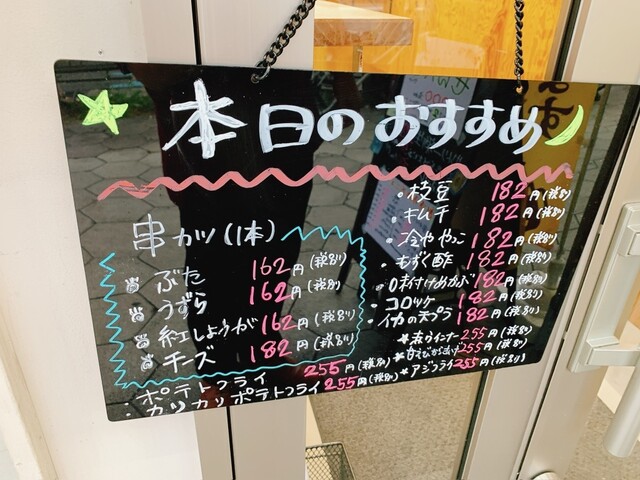 本日のおすすめ
串カツ(1本)
ぶた 162円(税別)
うずら 162円(税別)
紅しょうが 162円(税別)
チーズ 182円(税別)
ポテトフライ 255円(税別)
・カリカリポテトフライ 255円(税別)
・枝豆 182円(税別)
・キムチ 182円(税別)
・冷ややっこ 182円(税別)
・もずく酢 182円(税別)
・味付けめかぶ 182円(税別)
・コロッケ 182円(税別)
・イカの天プラ 182円(税別)
*赤ウインナー 255円(税別)
*甘えびから揚げ 255円(税別)
*アジフライ 255円(税別)